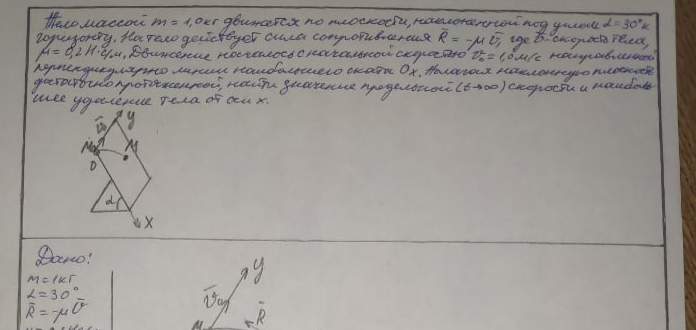 Тело массой m = 1,0 кг движется по плоскости, наклоненной под углом α = 30° к
горизонту. На тело действует сила сопротивления R̅ = -μ V̅, где V̅-скорость тела,
μ = 0,2 Н·с/м. Движение началось с начальной скоростью V̅₀ = 1,0 м/с направленной
перпендикулярно линии наибольшего ската Ox. Полагая наклонную плоскость
достаточно протяженной, найти значение предельной (t→∞) скорости и наиболь-
шее удаление тела от оси x.
y
V̅₀
M₀ M
O
α
x
Дано:
m = 1кг
α = 30°
R̅ = -μV̅
y
V̅₀
R̅
M